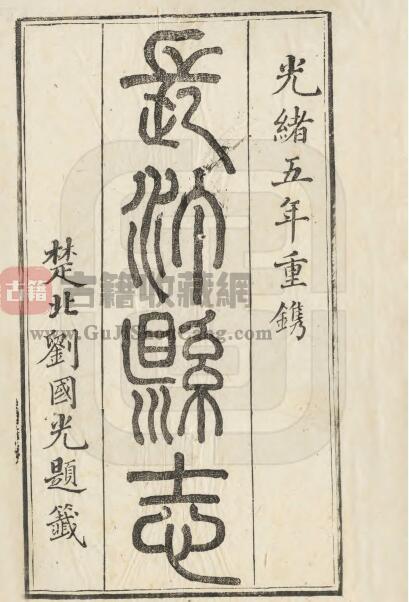 光緒五年重鐫
長汀縣志
楚北劉國光題籤
古籍
古籍收藏網
www.GuJiShouCang.com